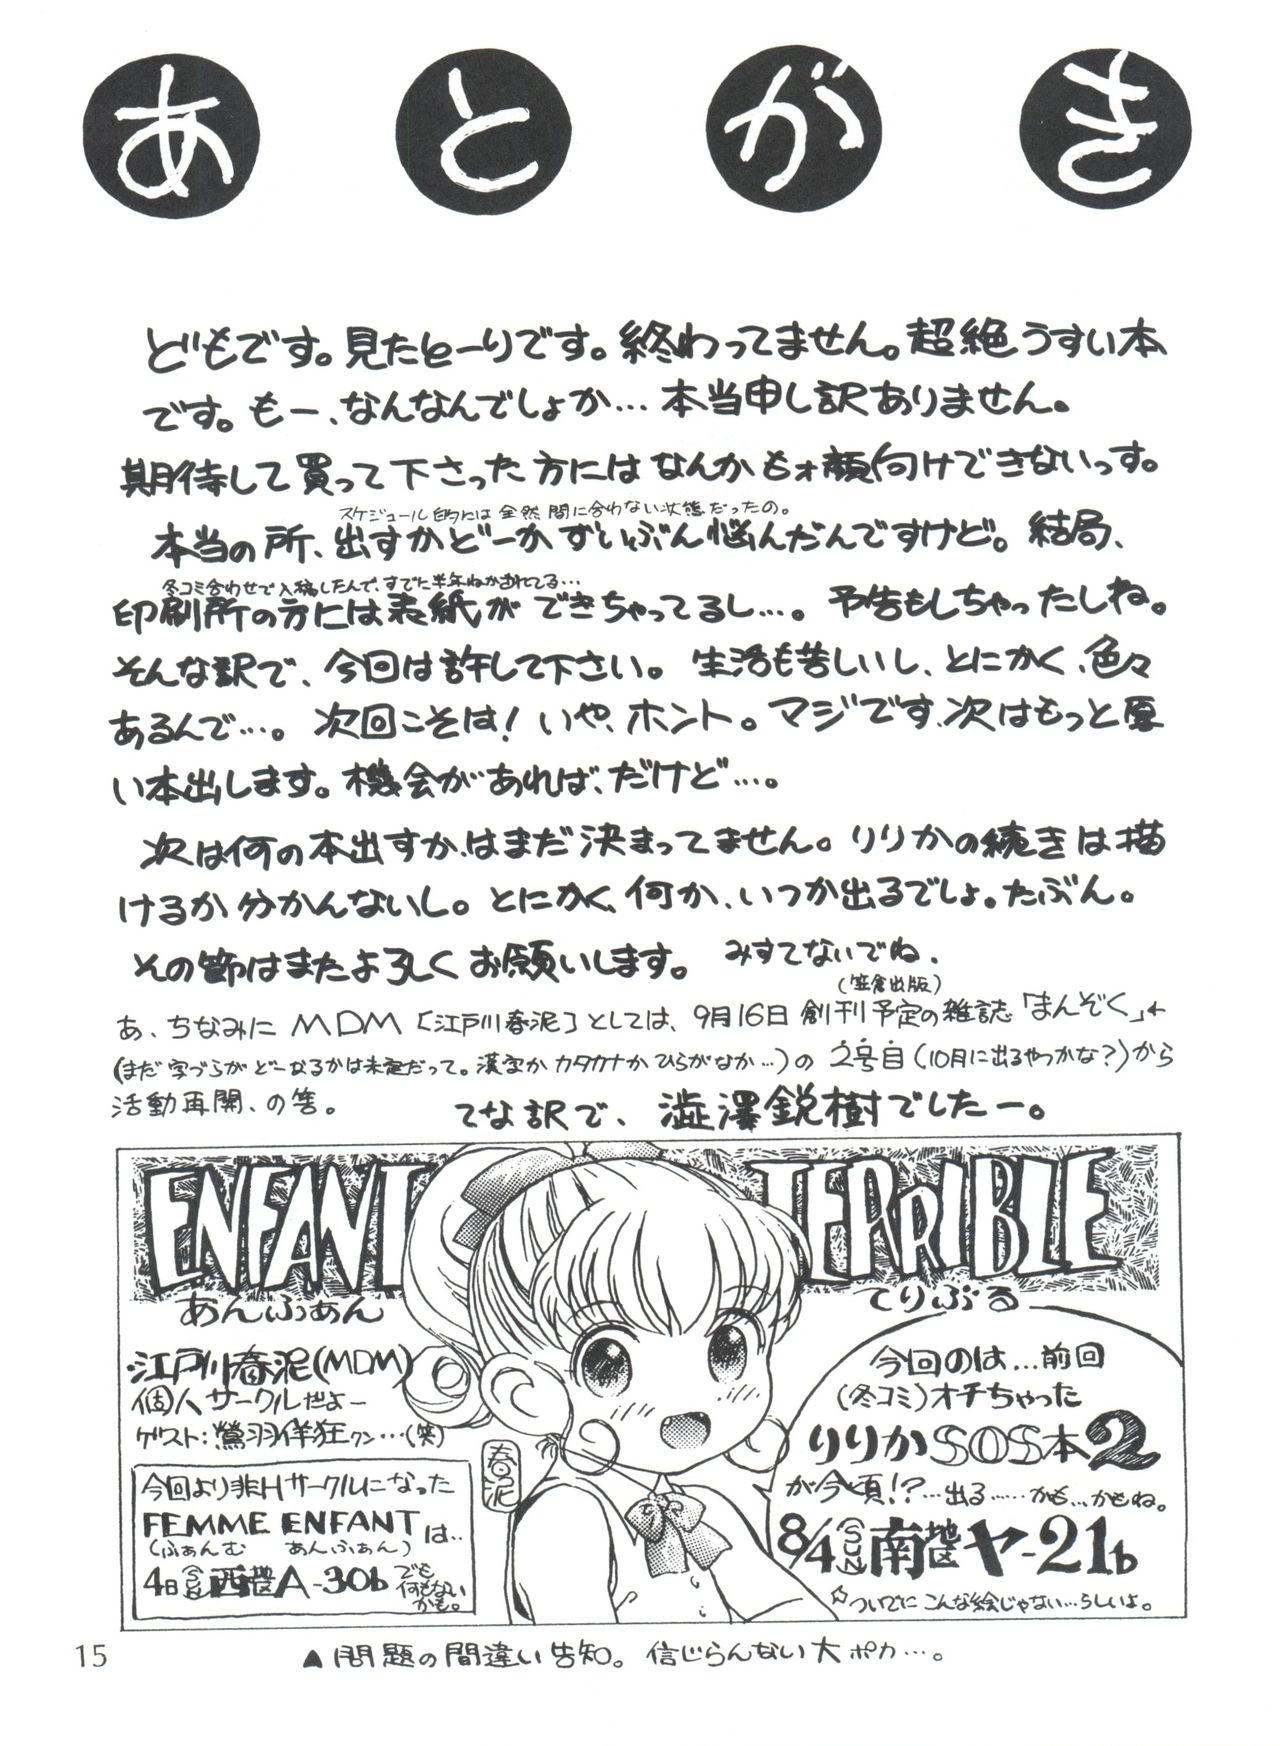 あとがき
どもです。見たとーりです。終わってません。超絶うすい本
です。もー、なんなんでしょか…本当申し訳ありません。
期待して買って下さった方にはなんかもォ顔向けできないっす。
スケジュール的には全然間に合わない状態だったの。
本当の所、出すかどーかずいぶん悩んだんですけど。結局、
冬コミ合わせで入稿したんで、すでに半年ねかされてる…
印刷所の方には表紙ができちゃってるし…。予告もしちゃったしね。
そんな訳で、今回は許して下さい。生活も苦しいし、とにかく、色々
あるんで…。次回こそは！いや、ホント。マジです、次はもっと厚
い本出します。機会があれば、だけど…。
次は何の本出すか、はまだ決まってません。りりかの続きは描
けるか分かんないし。とにかく、何か、いつか出るでしょ。たぶん。
その節はまたよろしくお願いします。 みすてないでね、
(笠倉出版)
あ、ちなみにMDM［江戸川春泥］としては、9月16日創刊予定の雑誌「まんぞく」←
(まだ字づらがどーなるかは未定だって。漢字かカタカナかひらがなか…)の2号目(10月に出るやつかな？)から
活動再開、の筈。 てな訳で、澁澤鋭樹でしたー。
ENFANT TERRIBLE
あんふぁん てりぶる
江戸川春泥(MDM)
個人サークルだよー
ゲスト:鶯羽洋狂クン…(笑)
今回より非Hサークルになった
FEMME ENFANTは‥
(ふぁんむ あんふぁん)
4日(SUN)西地区A-30b でも何もないかも。
春泥
今回のは…前回
(冬コミ)オチちゃった
りりかSOS本2
が今頃!?…出る……かも…かもね。
8/4(SUN)南地区ヤ-21b
☆ついでにこんな絵じゃない…らしいよ。
15
▲問題の間違い告知。信じらんない大ポカ…。